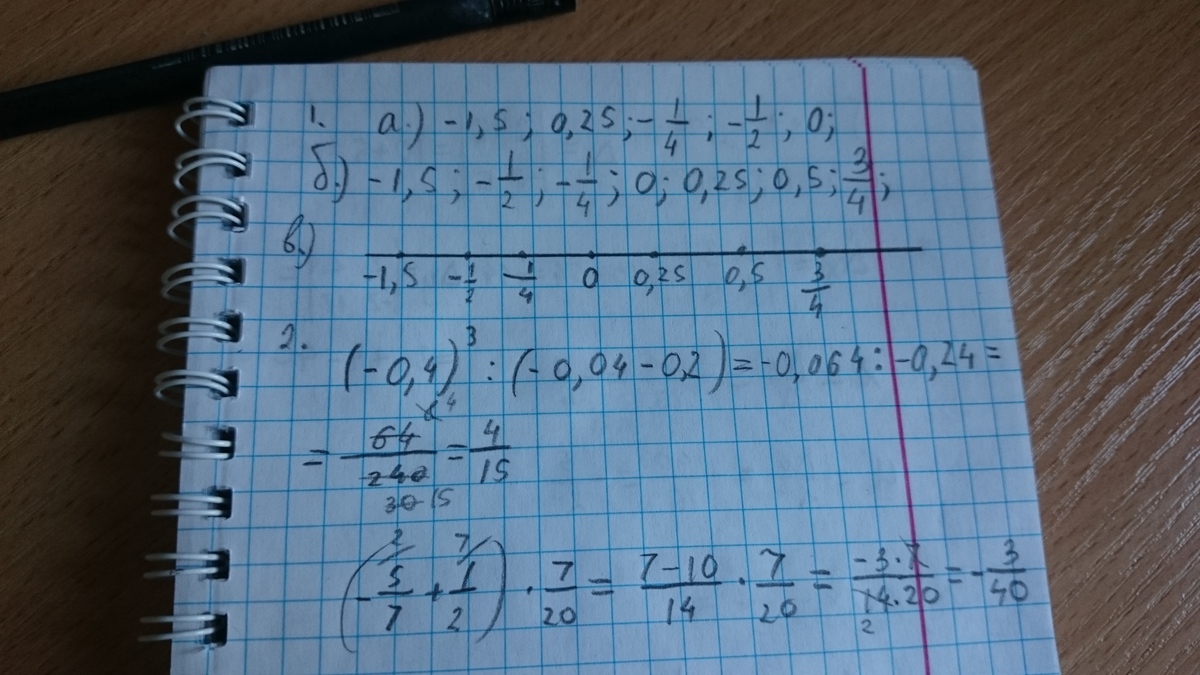 1. а.) -1,5; 0,25; -1/4; -1/2; 0;
б.) -1,5; -1/2; -1/4; 0; 0,25; 0,5; 3/4;
в.)
-1,5 -1/2 -1/4 0 0,25 0,5 3/4
2. (-0,4)^3 : (-0,04-0,2) = -0,064 : -0,24 =
= 64/240 = 4/15
8 4
30 15
2 7
(-5/7 + 1/2) · 7/20 = 7-10/14 · 7/20 = -3·7/14·20 = -3/40
2